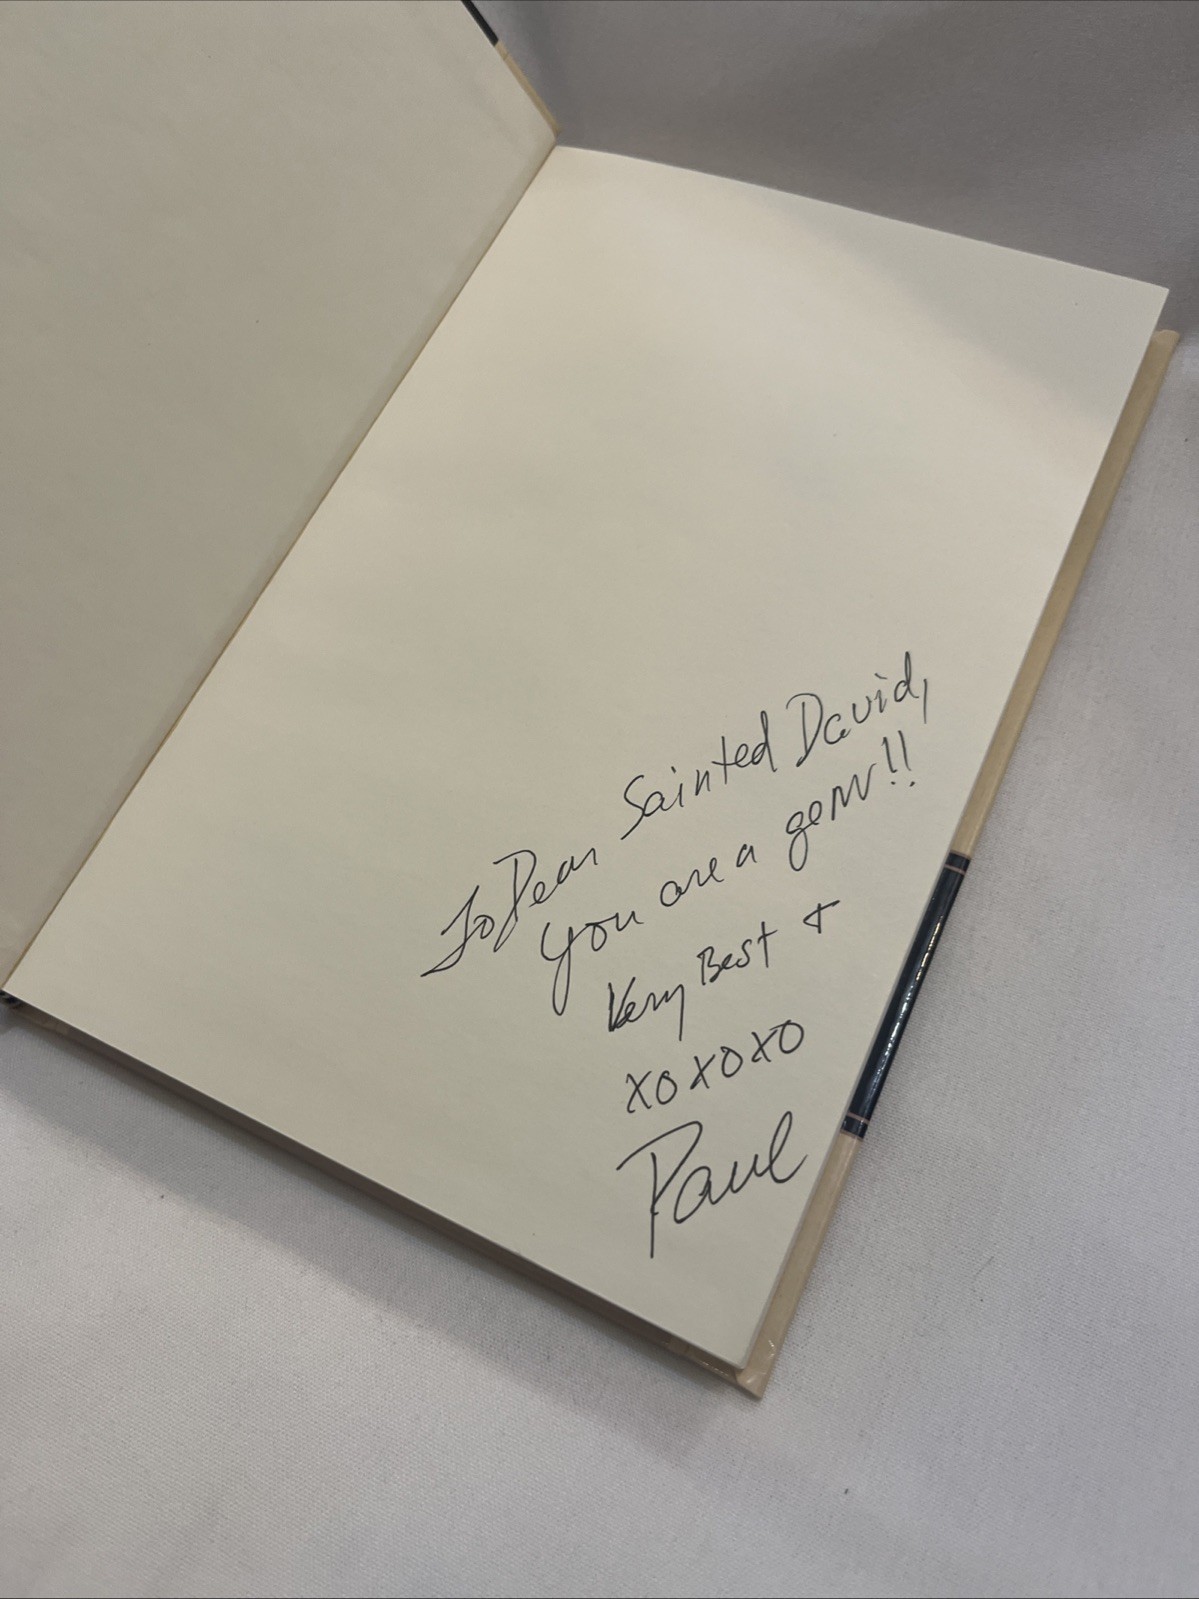 To Dear Sainted David,
You are a gem!!
Very Best +
XOXOXO
Paul